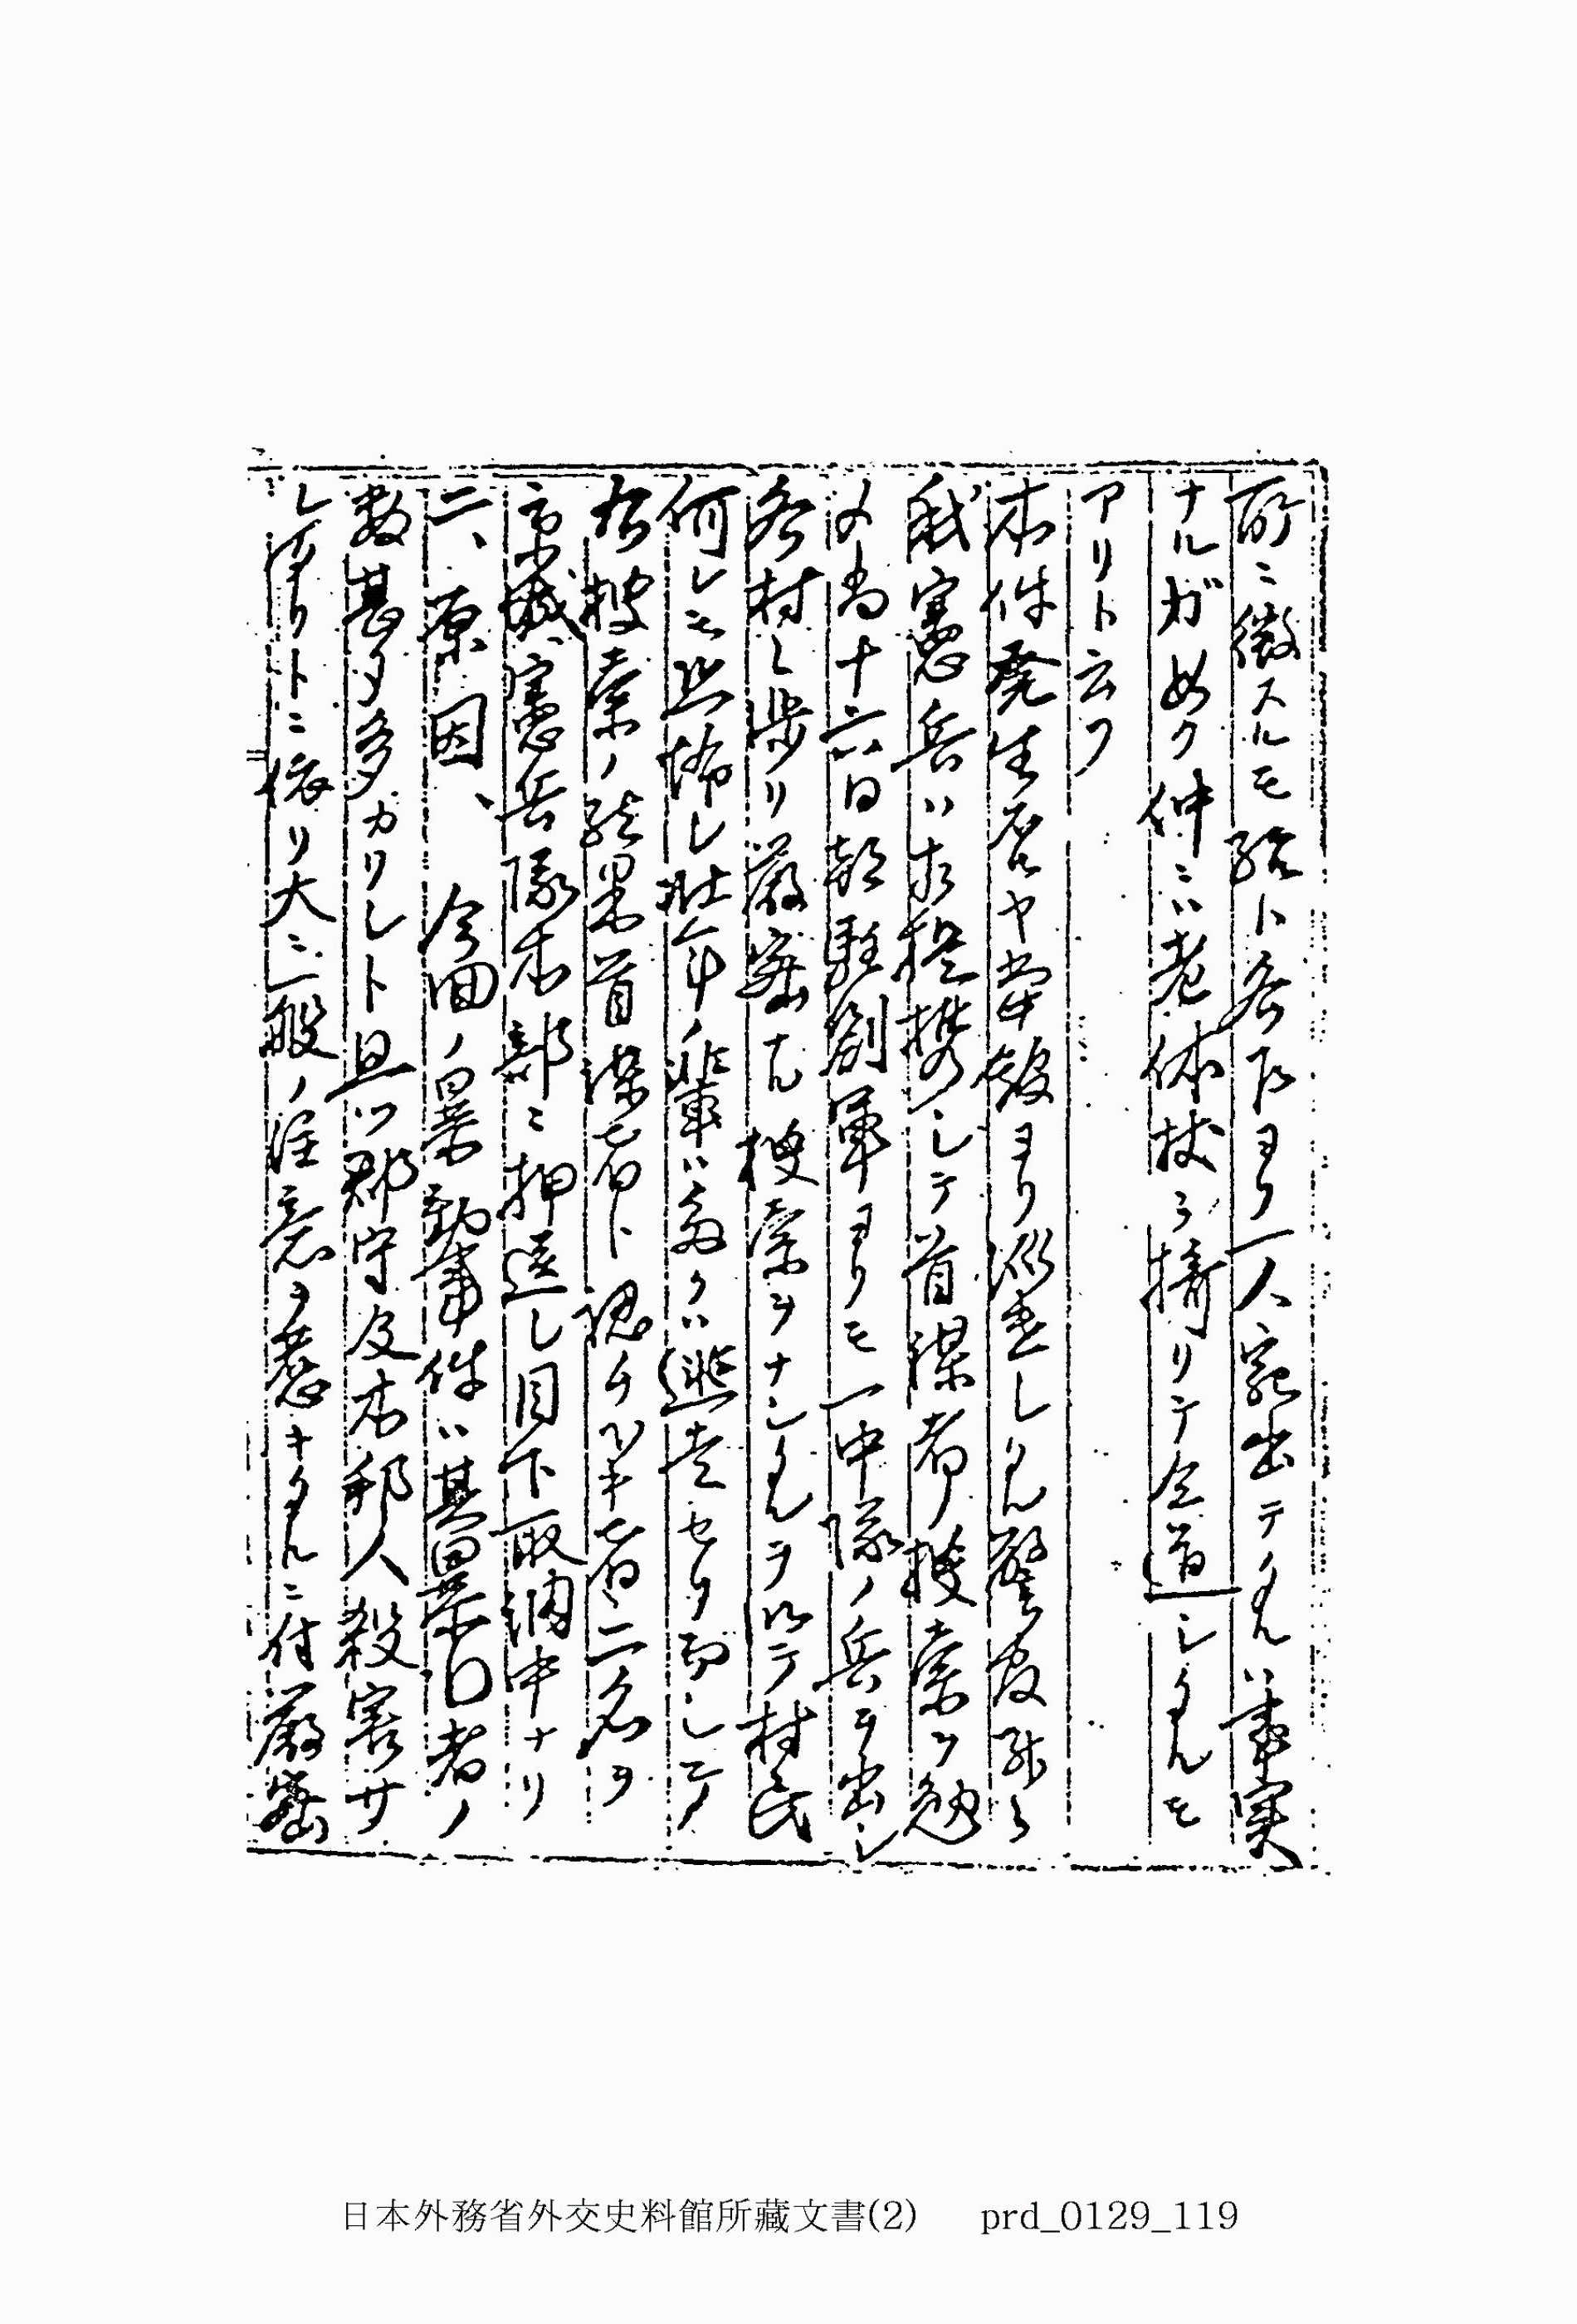 所ニ徴スルモ殆ト各戸ヨリ一人宛出テタルハ事実
ナルガ如ク仲ニハ老体杖ニ掎リテ会道シタルモ
アリト云フ
本件発生スルヤ京城ヨリ巡査シ警官並ニ
我憲兵ハ相提携シテ首謀者ノ捜索ヲ勉
メ尚十六日朝駐剳軍ヨリモ一中隊ノ兵ヲ出シ
各村ニ渉リ厳密ナル捜索ヲナシタルヲ以テ村民
何レモ恐怖シ壮年ノ輩ハ多クハ逃走セリ而シテ
右捜索ノ結果首謀者ト認ムヘキ者二名ヲ
京城憲兵隊本部ニ押送シ目下取調中ナリ
二、原因、 今回ノ暴動事件ハ其暴口者ノ
数甚タ多カリシト且ツ郡守及本邦人殺害サ
レタリトニ依リ大ニ一般ノ注意ヲ惹キタルニ付厳密
日本外務省外交史料館所藏文書(2) prd_0129_119